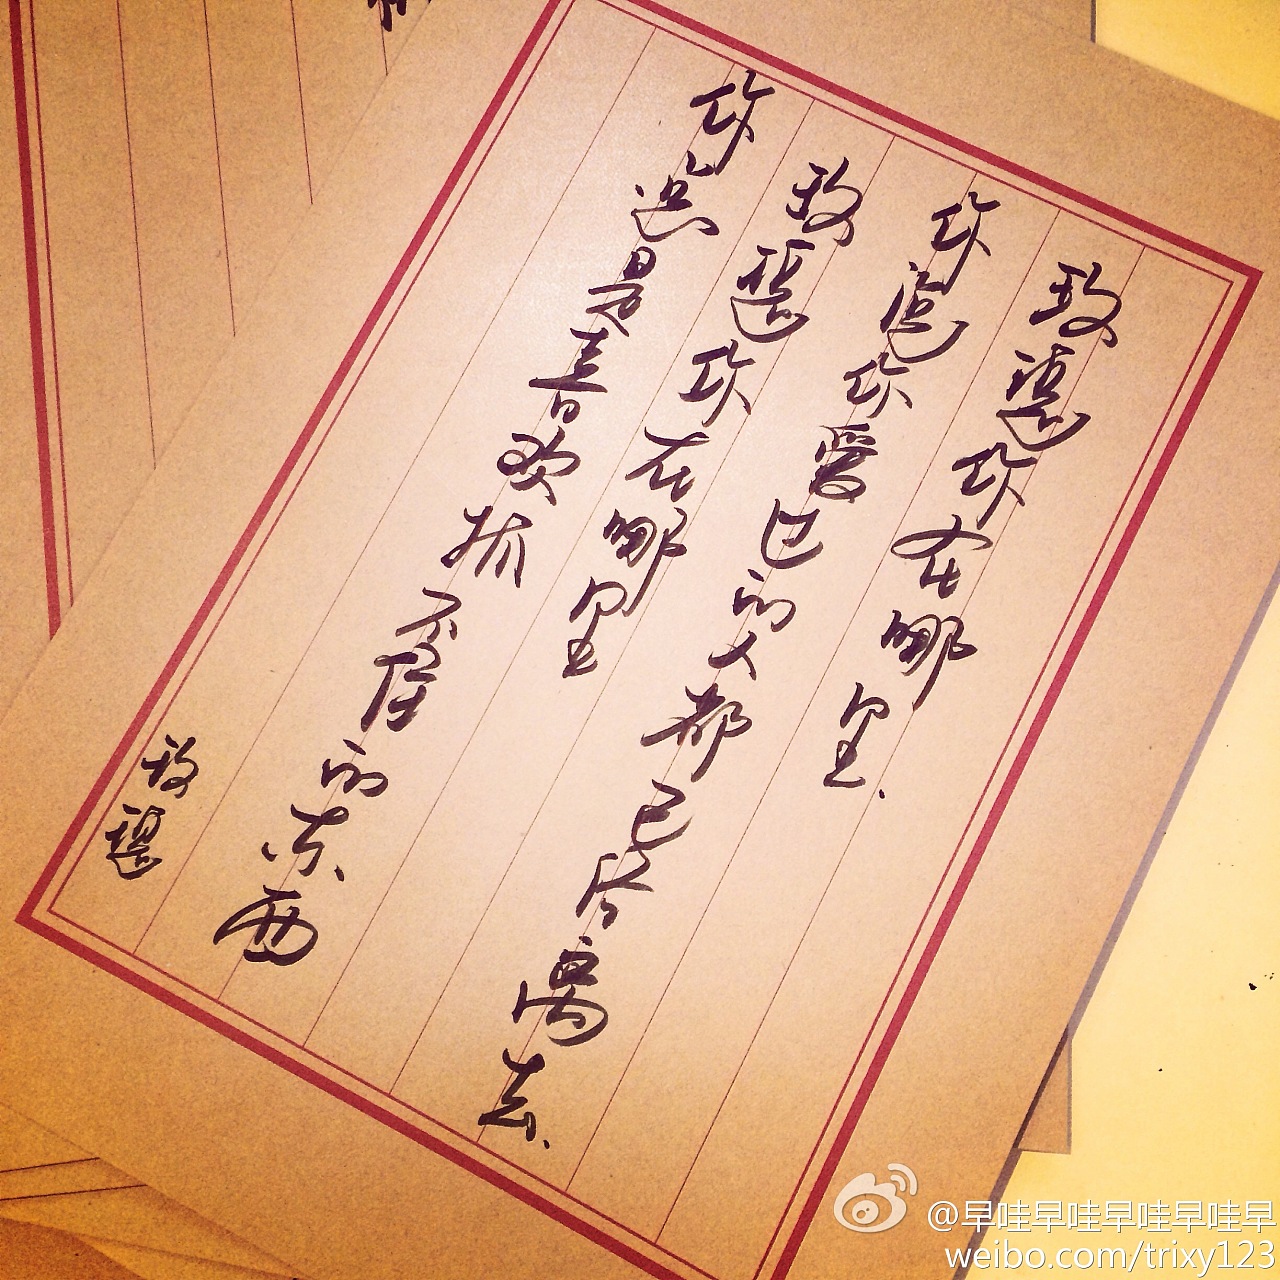 玫瑰你在哪里
你说你爱过的人都已经离去
玫瑰你在哪里
你总是喜欢抓不住的东西
玫瑰
@早哇早哇早哇早哇早
weibo.com/trixy123